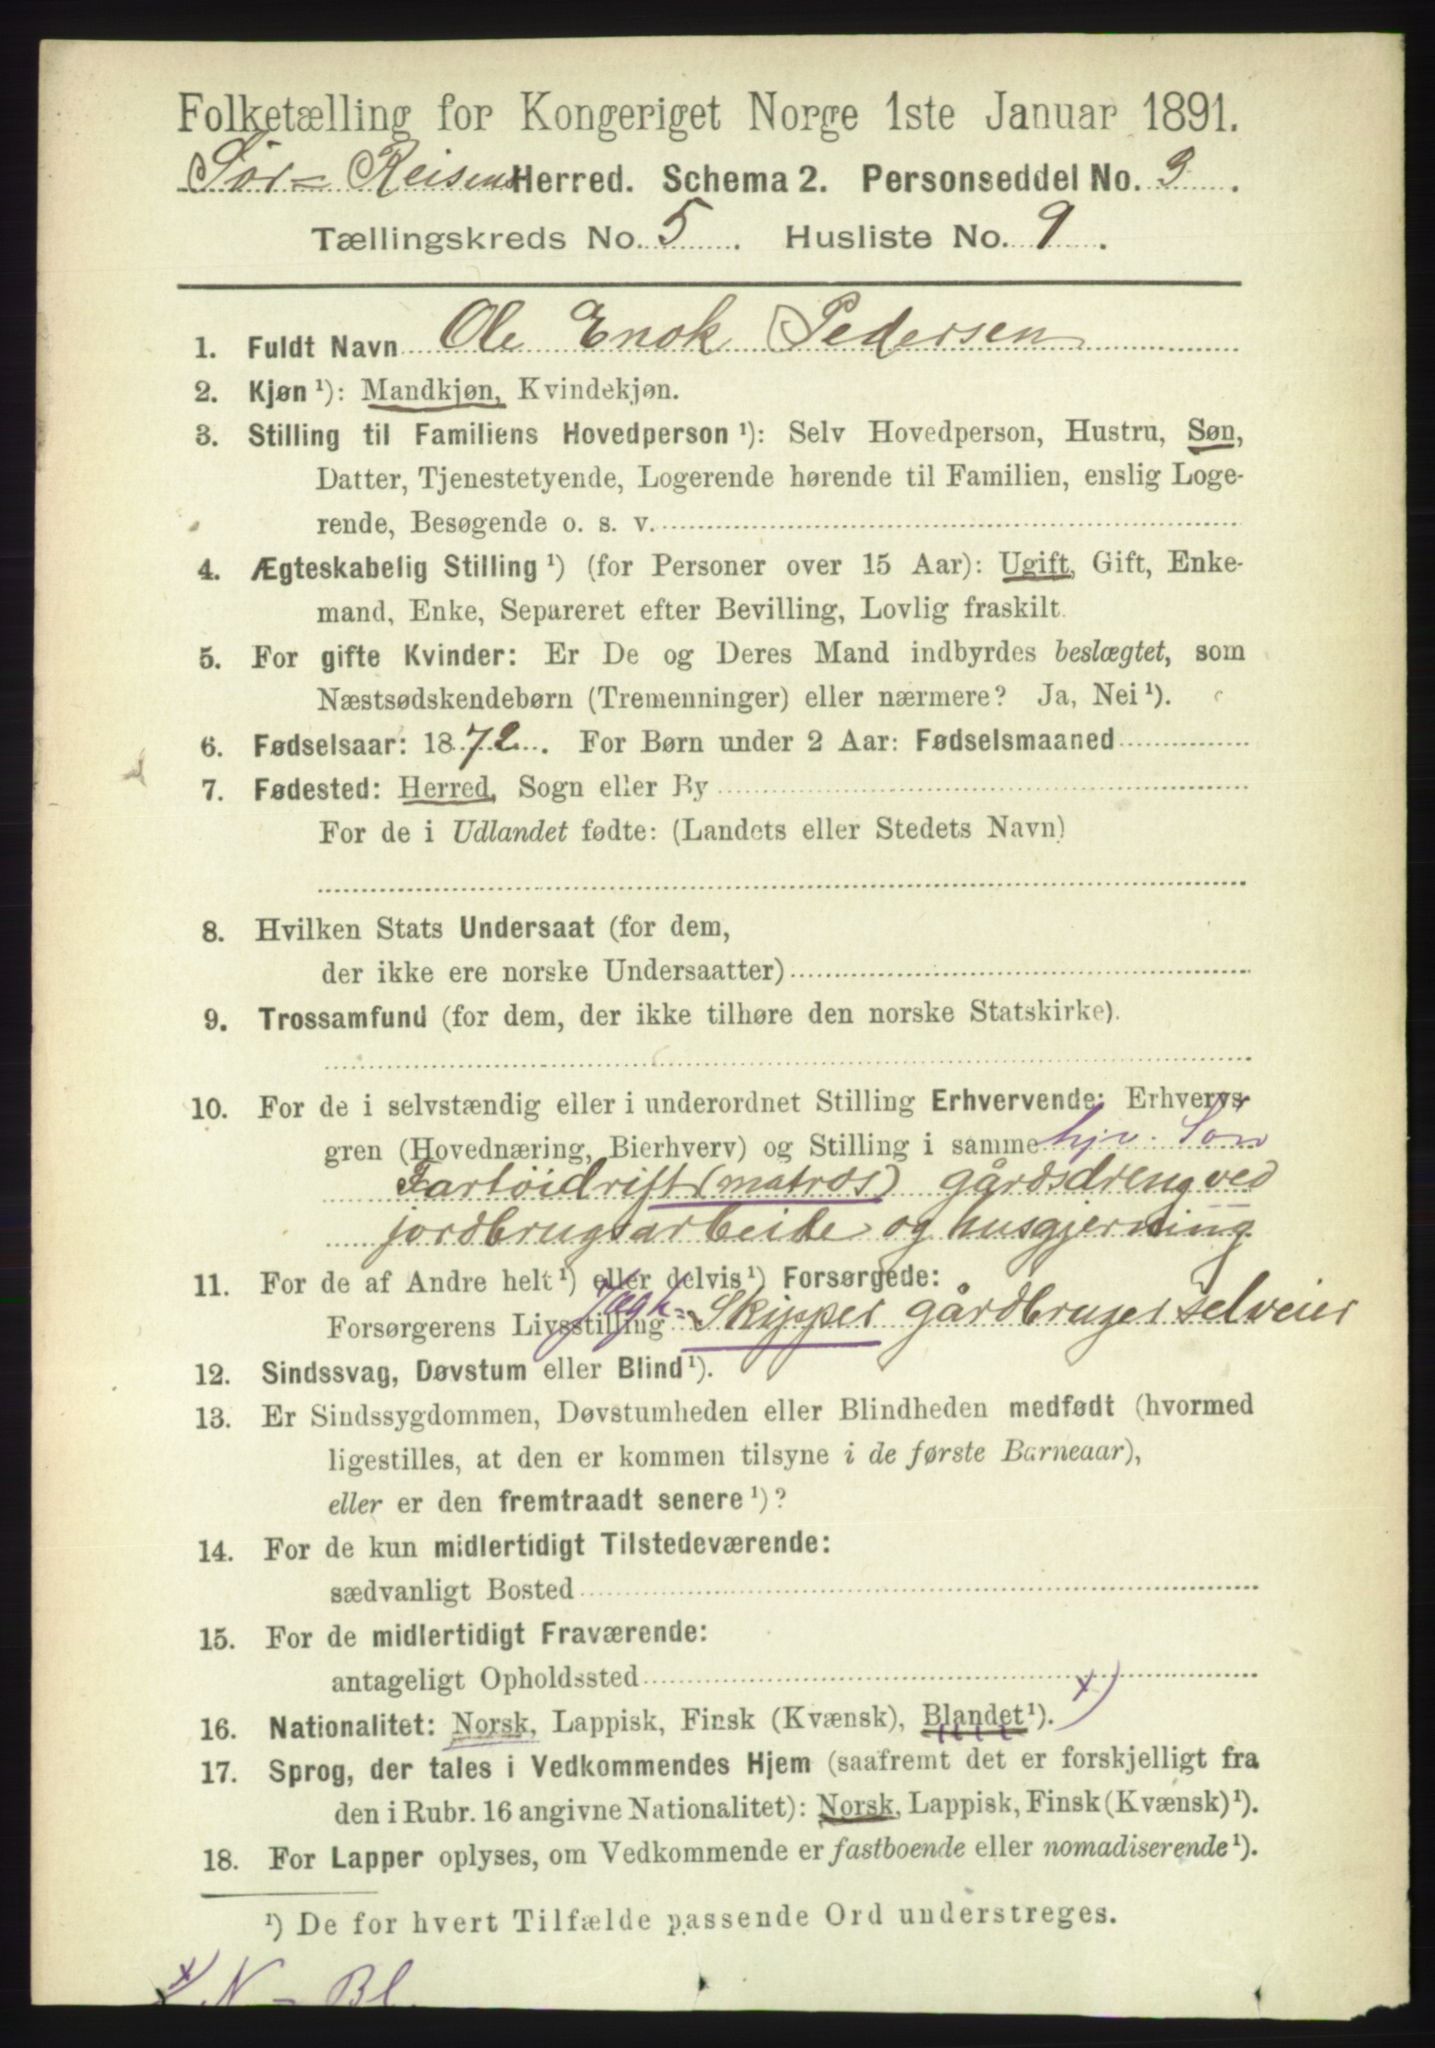 Folketælling for Kongeriget Norge 1ste Januar 1891.
Sør-Reisens Herred. Schema 2. Personseddel No. 3.
Tællingskreds No. 5. Husliste No. 9.
1. Fuldt Navn Ole Enok Pedersen
2. Kjøn ¹): Mandkjøn, Kvindekjøn.
3. Stilling til Familiens Hovedperson ¹): Selv Hovedperson, Hustru, Søn,
Datter, Tjenestetyende, Logerende hørende til Familien, enslig Loge-
rende, Besøgende o. s. v.
4. Ægteskabelig Stilling ¹) (for Personer over 15 Aar): Ugift, Gift, Enke-
mand, Enke, Separeret efter Bevilling, Lovlig fraskilt.
5. For gifte Kvinder: Er De og Deres Mand indbyrdes beslægtet, som
Næstsødskendebørn (Tremenninger) eller nærmere? Ja, Nei ¹).
6. Fødselsaar: 1872. For Børn under 2 Aar: Fødselsmaaned
7. Fødested: Herred, Sogn eller By
For de i Udlandet fødte: (Landets eller Stedets Navn)
8. Hvilken Stats Undersaat (for dem,
der ikke ere norske Undersaatter)
9. Trossamfund (for dem, der ikke tilhøre den norske Statskirke).
10. For de i selvstændig eller i underordnet Stilling Erhvervende: Erhvervs-
gren (Hovednæring, Bierhverv) og Stilling i samme hjv. Søn
Fartöidrift (matros) gårdsdreng ved
jordbrugsarbeide og husgjerning
11. For de af Andre helt ¹) eller delvis ¹) Forsørgede:
Forsørgerens Livsstilling Jægt- Skipper gårdbruger selveier
12. Sindssvag, Døvstum eller Blind ¹).
13. Er Sindssygdommen, Døvstumheden eller Blindheden medfødt (hvormed
ligestilles, at den er kommen tilsyne i de første Barneaar),
eller er den fremtraadt senere ¹)?
14. For de kun midlertidigt Tilstedeværende:
sædvanligt Bosted
15. For de midlertidigt Fraværende:
antageligt Opholdssted
16. Nationalitet: Norsk, Lappisk, Finsk (Kvænsk), Blandet ¹). x)
17. Sprog, der tales i Vedkommendes Hjem (saafremt det er forskjelligt fra
den i Rubr. 16 angivne Nationalitet): Norsk, Lappisk, Finsk (Kvænsk) ¹).
18. For Lapper oplyses, om Vedkommende er fastboende eller nomadiserende ¹).
¹) De for hvert Tilfælde passende Ord understreges.
x) N - Bl.